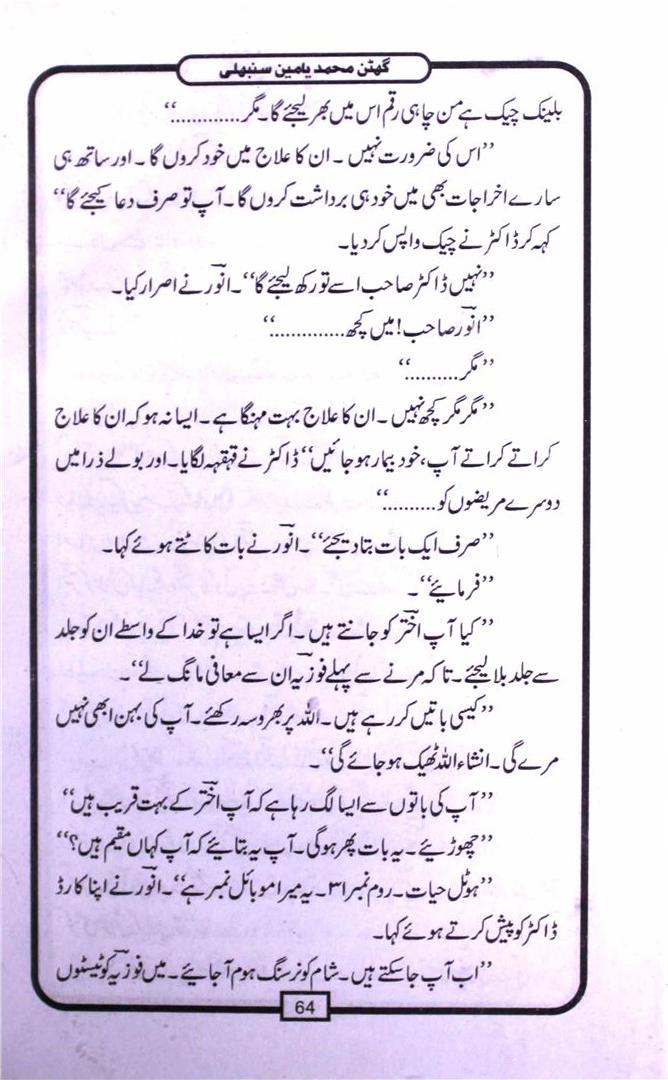 گھٹن محمد یامین سنبھلی
بلینک چیک ہے من چاہی رقم اس میں بھر لیجئے گا۔ مگر..............‘‘
’’اس کی ضرورت نہیں۔ ان کا علاج میں خود کروں گا۔ اور ساتھ ہی
سارے اخراجات بھی میں خود ہی برداشت کروں گا۔ آپ تو صرف دعا کیجئے گا‘‘
کہہ کر ڈاکٹر نے چیک واپس کر دیا۔
’’نہیں ڈاکٹر صاحب اسے تو رکھ لیجئے گا‘‘۔ انورؔ نے اصرار کیا۔
’’انورؔ صاحب! میں کچھ..............‘‘
’’مگر..........‘‘
’’مگر مگر کچھ نہیں۔ ان کا علاج بہت مہنگا ہے۔ ایسا نہ ہو کہ ان کا علاج
کراتے کراتے آپ، خود بیمار ہو جائیں‘‘ ڈاکٹر نے قہقہہ لگایا۔ اور بولے ذرا میں
دوسرے مریضوں کو..........‘‘
’’صرف ایک بات بتا دیجئے‘‘۔ انورؔ نے بات کاٹتے ہوئے کہا۔
’’فرمائیے‘‘۔
’’کیا آپ اخترؔ کو جانتے ہیں۔ اگر ایسا ہے تو خدا کے واسطے ان کو جلد
سے جلد بلا لیجئے۔ تاکہ مرنے سے پہلے فوزیہؔ ان سے معافی مانگ لے‘‘۔
’’کیسی باتیں کر رہے ہیں۔ اللہ پر بھروسہ رکھئے۔ آپ کی بہن ابھی نہیں
مرے گی۔ انشاء اللہ ٹھیک ہو جائے گی‘‘۔
’’آپ کی باتوں سے ایسا لگ رہا ہے کہ آپ اخترؔ کے بہت قریب ہیں‘‘
’’چھوڑیئے۔ یہ بات پھر ہوگی۔ آپ یہ بتائیے کہ آپ کہاں مقیم ہیں؟‘‘
’’ہوٹل حیات۔ روم نمبر ۳۱۔ یہ میرا موبائل نمبر ہے‘‘۔ انورؔ نے اپنا کارڈ
ڈاکٹر کو پیش کرتے ہوئے کہا۔
’’اب آپ جا سکتے ہیں۔ شام کو نرسنگ ہوم آ جائیے۔ میں فوزیہؔ کو ٹیسٹوں
64